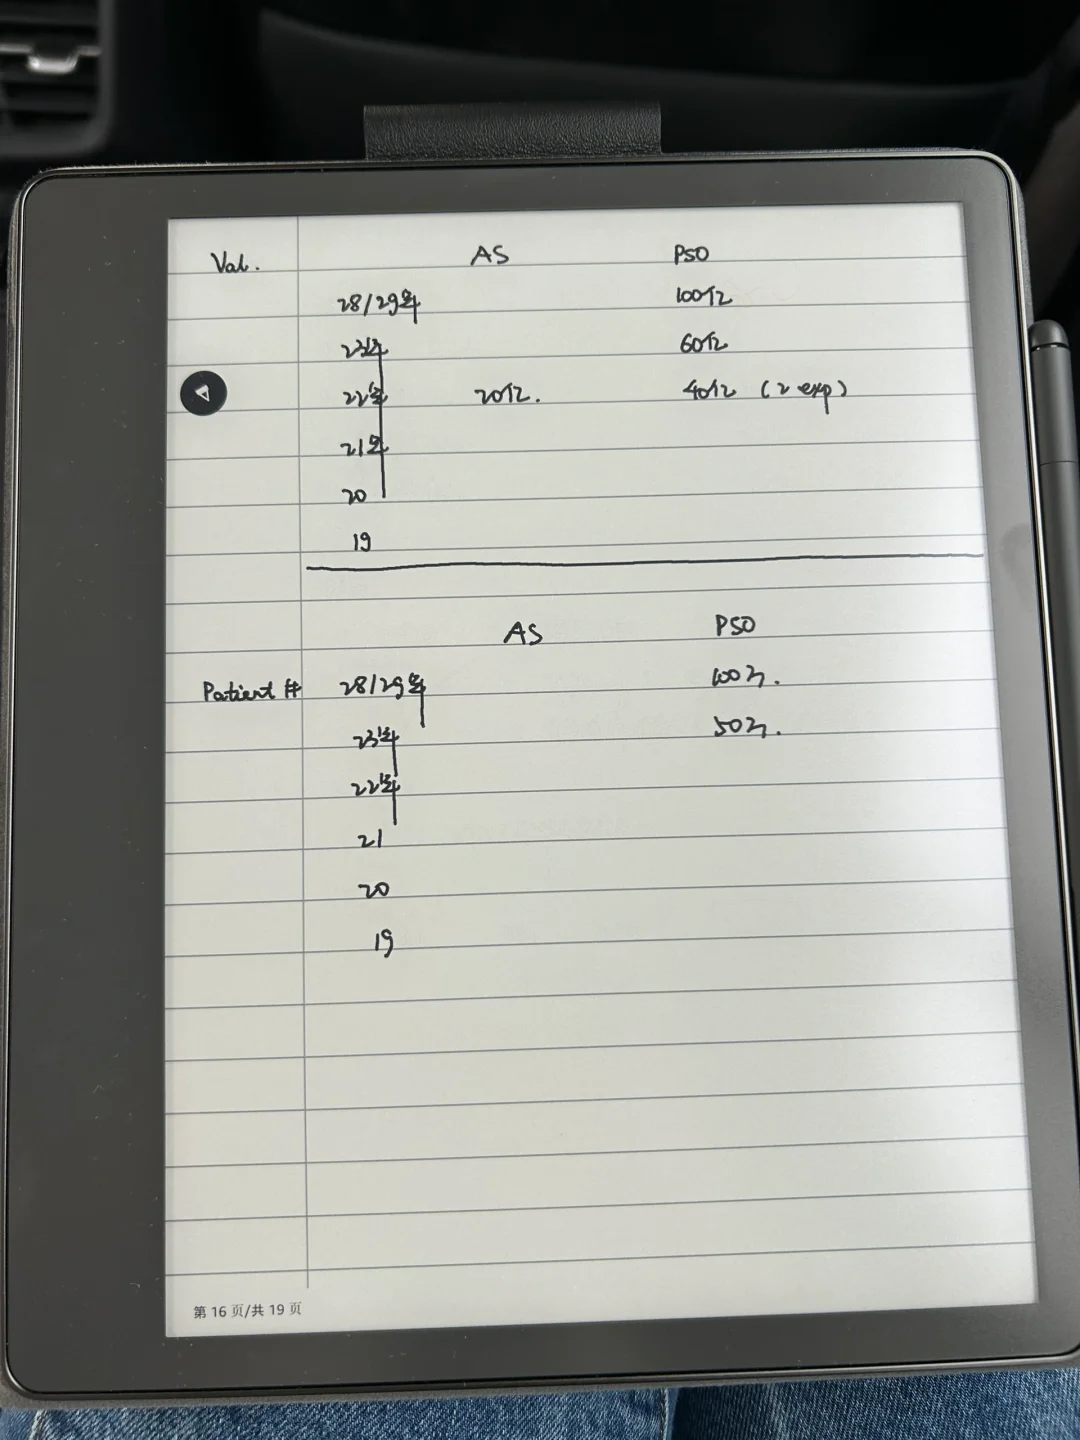 Val. AS PSO
28/29年 100亿
23年 60亿
22年 20亿. 40亿 (2 exp)
21年
20
19
AS PSO
Patient # 28/29年 100万.
23年 50万.
22年
21
20
19
第 16 页/共 19 页